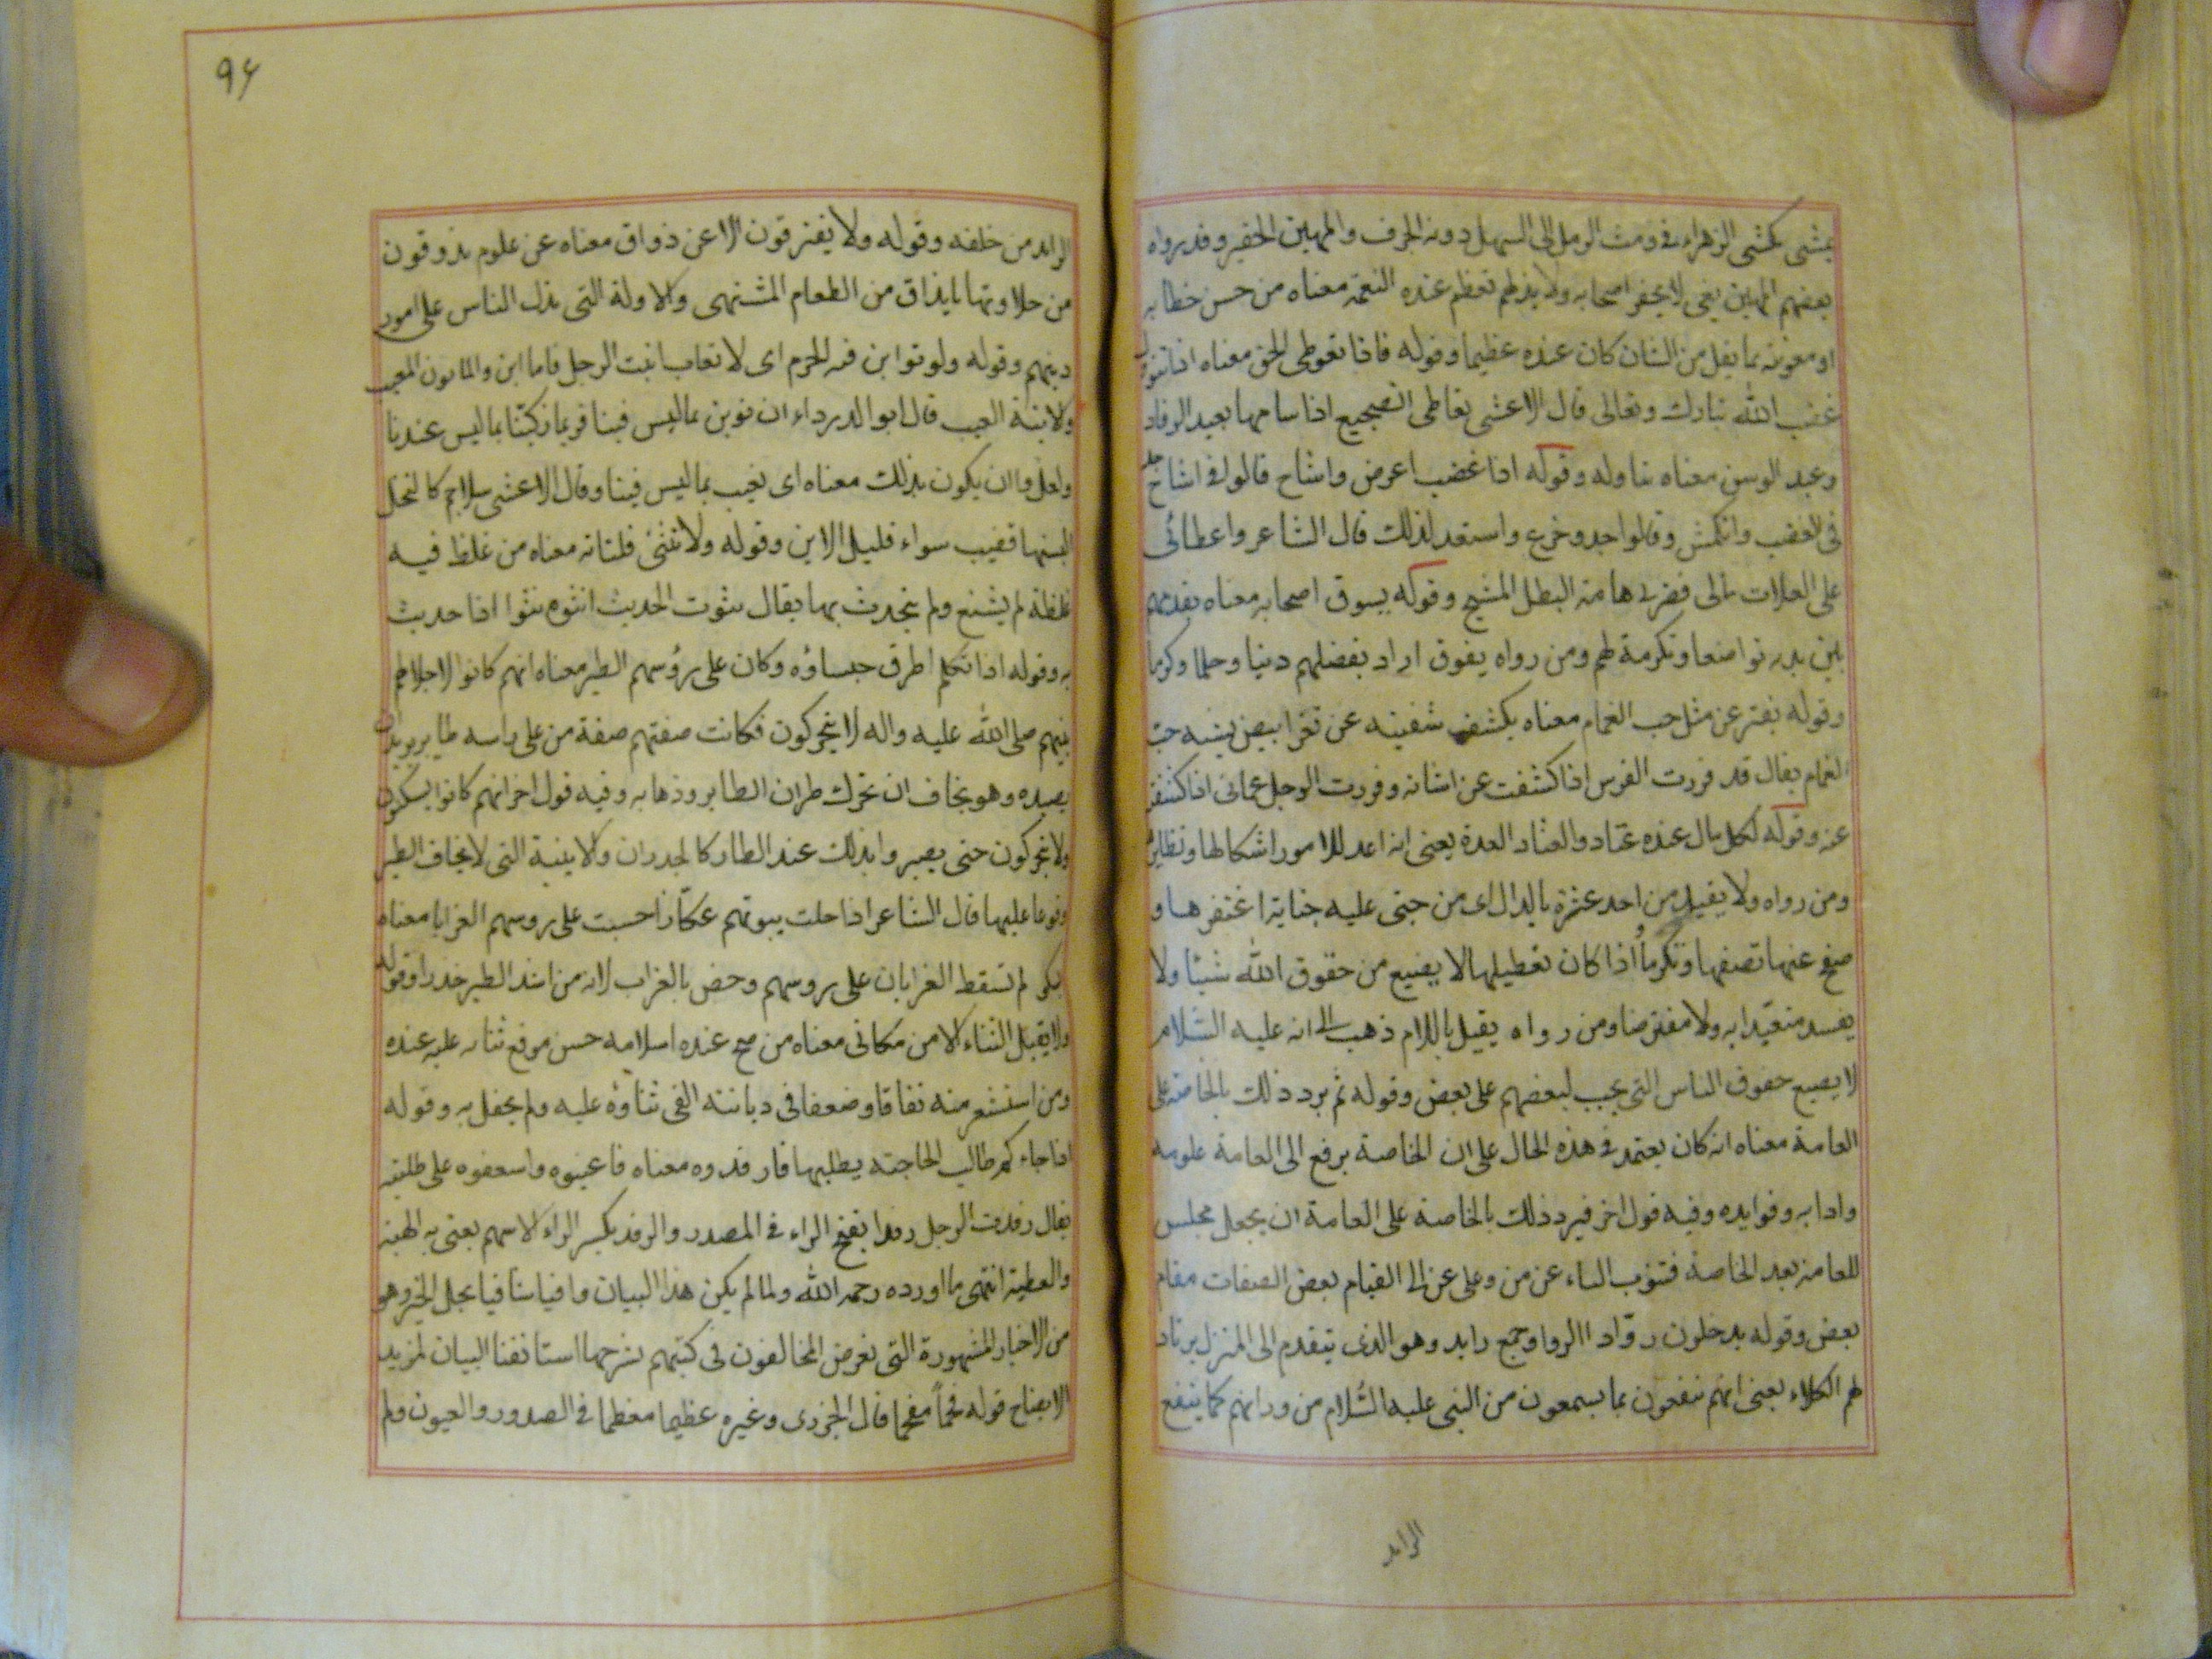 يمشى كمشى الزهراء فى دمث الرمل الى السهل دونه الجرف والمهين الحقير وقد رواه
بعضهم المهين يعنى لا يحقر اصحابه ولا يذلهم تعظم عنده النعمة معناه من حسن خطابه
او معونته بما يقل من الشان كان عنده عظيما وقوله فاذا تعوطى الحق معناه اذا تنوول
غضب الله تبارك وتعالى قال الاعشى تعاطى الضجيع اذا سامها بعيد الرقاد
وعند الوسن معناه تناوله وقوله اذا غضب اعرض واشاح قالوا فى اشاح جد
فى الغضب وانكمش وقالوا جد وجزع واستعد لذلك قال الشاعر واعطائى
على العلات مالى فضربى هامة البطل المشيح وقوله يسوق اصحابه معناه يقدمهم
بين يديه تواضعا وتكرمة لهم ومن رواه يفوق اراد يفضلهم دينا وحلما وكرما
وقوله يفتر عن مثل حب الغمام معناه يكشف شفتيه عن ثغر ابيض يشبه حب
الغمام يقال قد فررت الفرس اذا كشفت عن اسنانه وفررت الرجل عما فى اذا كشفت
عنه وقوله لكل حال عنده عتاد والعتاد العدة يعنى انه اعد للامور اشكالها ونظايرها
ومن رواه ولا يقيد من احد عثرة بالدال اى من جنى عليه جناية اغتفرها و
صفح عنها تصفها وتكرما اذا كان تعطيلها لا يضيع من حقوق الله شيئا ولا
يفسد متعبدا به ولا مفترضا ومن رواه يقيل باللام ذهب الى انه عليه السلام
لا يضيع حقوق الناس التى يجب لبعضهم على بعض وقوله ثم يرد ذلك بالخاصة على
العامة معناه انه كان يعتمد فى هذه الحال على ان الخاصة يرفع الى العامة علومه
وادابه وفوايده وفيه قول اخر فيرد ذلك بالخاصة على العامة ان يجعل مجلس
للعامة بعد الخاصة فتنوب الباء عن من وعلى عن الى القيام بعض الصفات مقام
بعض وقوله يدخلون روادا الرواد جمع رايد وهو الذى يتقدم الى المنزل يرتاد
لهم الكلاء يعنى انهم ينفعون بما يسمعون من النبى عليه السلام من ورائهم كما ينفع
الرايد
96
الرايد من خلفه وقوله ولا يفترقون الا عن ذواق معناه عن علوم يذوقون
من حلاوتها ما يذاق من الطعام المشتهى والادلة التى تدل الناس على امور
دينهم وقوله ولا تؤبن فيه الحرم اى لا تعاب ابنت الرجل فاما ابن والمابون المعيب
والابنة العيب قال ابو الدرداء ان نوبن بما ليس فينا فربما زكينا بما ليس عندنا
ولعل وان يكون بذلك معناه اى نعيب بما ليس فينا وقال الاعشى سلاجم كالنخل
البستها قضيب سراء قليل الابن وقوله ولا تنثى فلتاته معناه من غلط فيه
غلطة لم يشنع ولم يتحدث بها يقال نثوت الحديث انثوه نثوا اذا حديث
به وقوله اذا تكلم اطرق جلساؤه وكان على رؤسهم الطير معناه انهم كانوا لاجلالهم
نبيهم صلى الله عليه واله لا يتحركون فكانت صفتهم صفة من على راسه طاير يريد ان
يصيده وهو يخاف ان تحرك طيران الطاير وذهابه وفيه قول اخر انهم كانوا يسكنون
ولا يتحركون حتى يصيروا بذلك عند الطاير كالجدران والابنية التى لا يخاف الطير
وقوعا عليها قال الشاعر اذا حلت بيوتهم عكاظا حسبت على رؤسهم الغرابا معناه
لسكونهم تسقط الغرابان على رؤسهم وخص بالغراب لانه من اشد الطير حذرا وقوله
ولا يقبل الثناء الا من مكافى معناه من صح عنده اسلامه حسن موقع ثنائه عليه عنده
ومن استشعر منه نفاقا وضعفا فى ديانته القى ثناؤه عليه ولم يحفل به وقوله
اذا جاءكم طالب الحاجة يطلبها فارفدوه معناه فاعينوه واسعفوه على طلبته
يقال رفدت الرجل رفدا بفتح الراء فى المصدر والرفد بكسر الراء الاسم يعنى به الهبة
والعطية انتهى ما اورده رحمه الله ولما لم يكن هذا البيان وافيا شافيا بحل الخبر وهو
من الاخبار المشهورة التى تعرض المخالفون فى كتبهم شرحها استانفنا البيان لمزيد
الايضاح قوله فخماً مفخما قال الجزرى وغيره عظيما معظما فى الصدور والعيون ولم